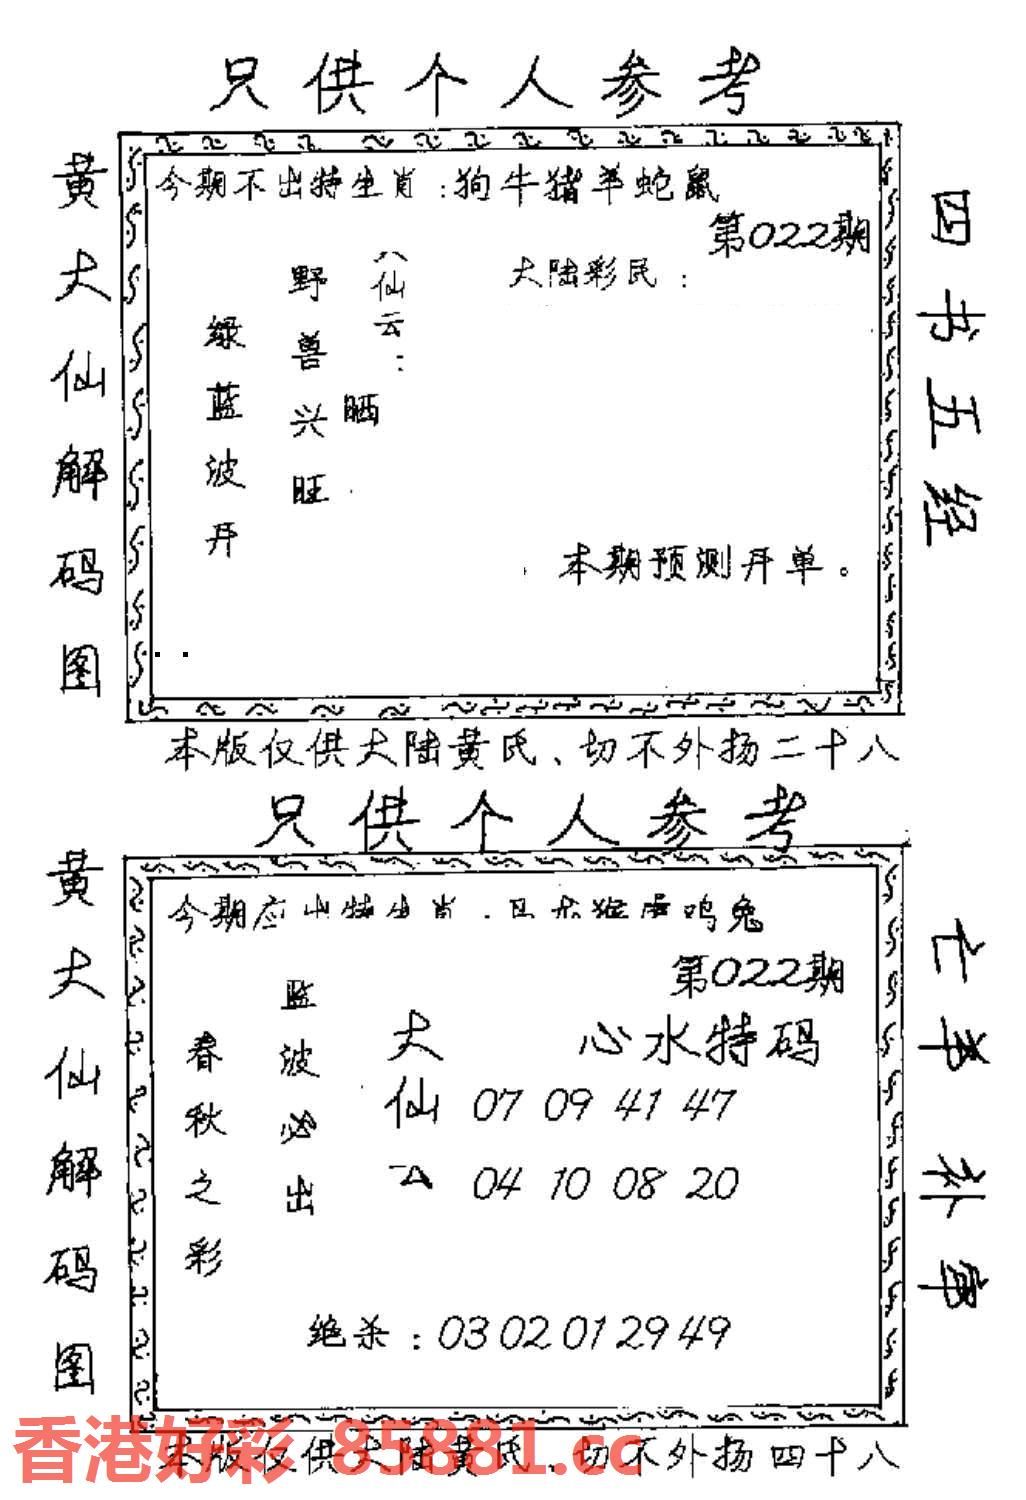 只供个人参考
黄大仙解码图
今期不出特生肖:狗牛猪羊蛇鼠
第022期
大陆彩民:
八仙云:
晒
野兽兴旺
绿蓝波开
本期预测开单。
四书五经
本版仅供大陆黄氏、切不外扬二十八
只供个人参考
黄大仙解码图
今期应出特生肖:马龙猴虎鸡兔
第022期
心水特码
大仙云
07 09 41 47
04 10 08 20
蓝波必出
春秋之彩
绝杀:03 02 01 29 49
本版仅供大陆黄氏、切不外扬四十八
香港好彩 85881.cc